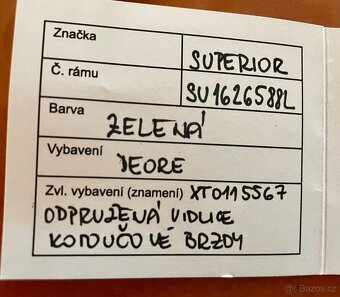 Značka SUPERIOR
Č. rámu SU1626588L
Barva ZELENÁ
Vybavení DEORE
Zvl. vybavení (znamení) XT0115567
ODPRUŽENÁ VIDLICE
KOTOUČOVÉ BRZDY
@( Bazos.cz